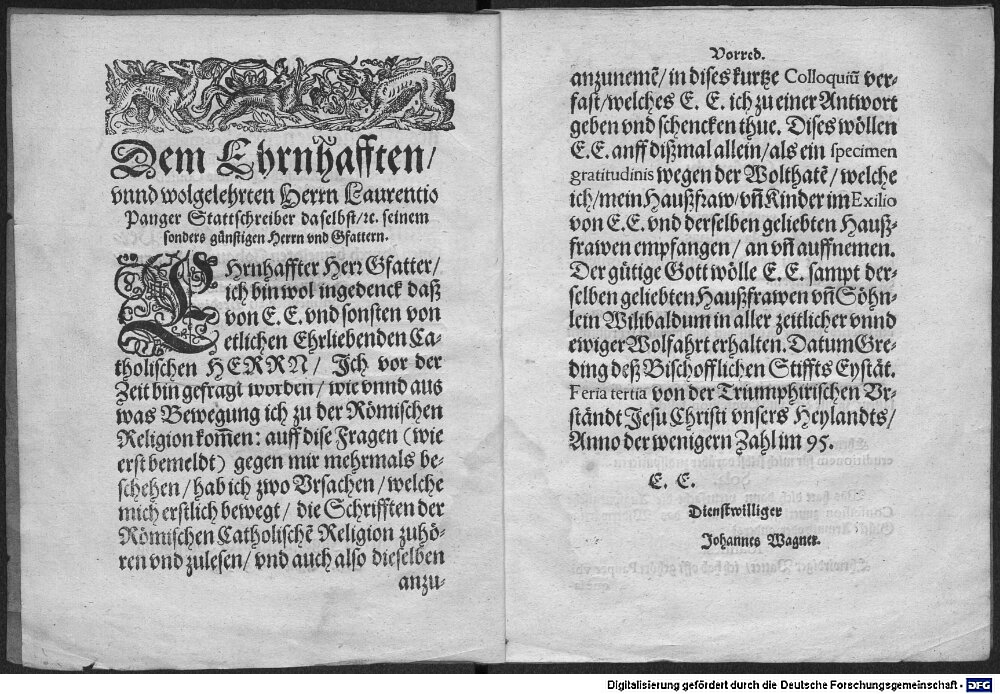 Dem Ehrnhafften/
vnnd wolgelehrten Herrn Laurentio
Panger Stattschreiber daselbst/ꝛc. seinem
sonders günstigen Herrn vnd Gfattern.
EHrnhaffter Herr Gfatter/
ich bin wol ingedenck daß
von E. E. vnd sonsten von
etlichen Ehrliebenden Ca-
tholischen HERRN/ Jch vor der
Zeit bin gefragt worden/ wie vnnd aus
was Bewegung ich zu der Römischen
Religion kom̄en: auff dise Fragen (wie
erst bemeldt) gegen mir mehrmals be-
schehen/ hab ich zwo Vrsachen/ welche
mich erstlich bewegt/ die Schrifften der
Römischen Catholischē Religion zuhö-
ren vnd zulesen/ vnd auch also dieselben
anzu-
Vorred.
anzunemē/ in dises kurtze Colloquiū ver-
fast/ welches E. E. ich zu einer Antwort
geben vnd schencken thue. Dises wöllen
E. E. auff dißmal allein/ als ein specimen
gratitudinis wegen der Wolthatē/ welche
ich/ mein Haußfraw/ vn̄ Kinder im Exilio
von E. E. vnd derselben geliebten Hauß-
frawen empfangen/ an vn̄ auffnemen.
Der gütige Gott wölle E. E. sampt der-
selben geliebten Haußfrawen vn̄ Söhn-
lein Wilibaldum in aller zeitlicher vnnd
ewiger Wolfahrt erhalten. Datum Gre-
ding deß Bischofflichen Stiffts Eystät.
Feria tertia von der Triumphirischen Vr-
ständt Jesu Christi vnsers Heylandts/
Anno der wenigern Zahl im 95.
E. E.
Dienstwilliger
Johannes Wagner.
Digitalisierung gefördert durch die Deutsche Forschungsgemeinschaft - DFG